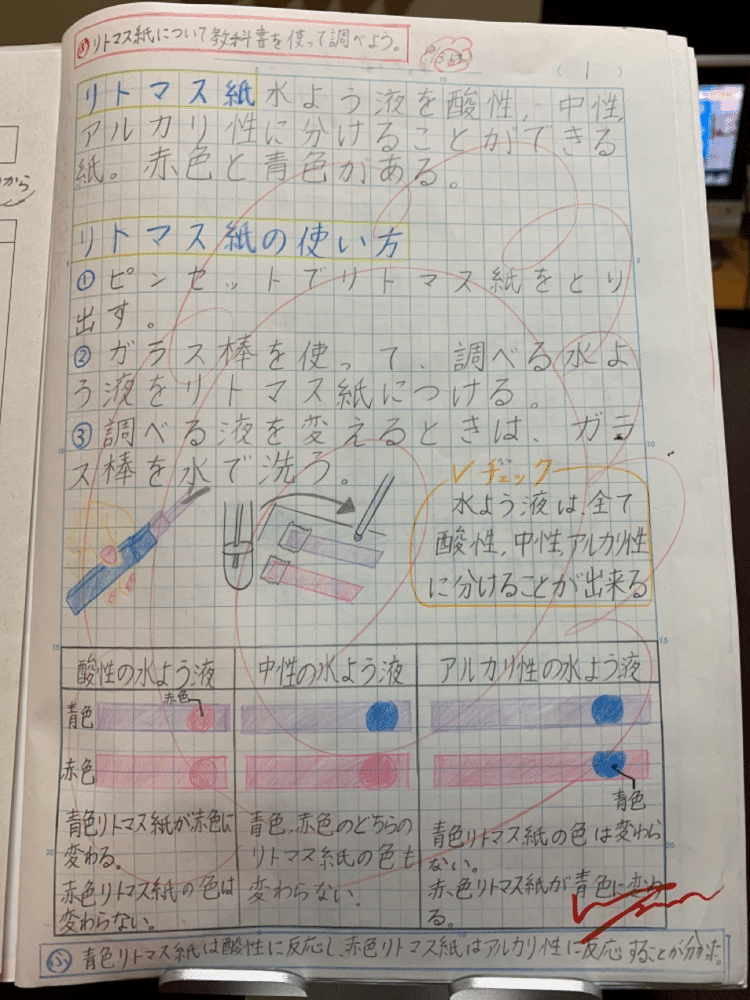 め リトマス紙について教科書を使って調べよう。
( 1 )
リトマス紙 水よう液を酸性,中性,
アルカリ性に分けることができる
紙。赤色と青色がある。
リトマス紙の使い方
①ピンセットでリトマス紙をとり
出す。
②ガラス棒を使って、調べる水よ
う液をリトマス紙につける。
③調べる液を変えるときは、ガラ
ス棒を水で洗う。
✓チェック
水よう液は、全て
酸性,中性,アルカリ性
に分けることが出来る
酸性の水よう液 中性の水よう液 アルカリ性の水よう液
赤色
青色
赤色
青色
青色リトマス紙が赤色に
変わる。
赤色リトマス紙の色は
変わらない。
青色、赤色のどちらの
リトマス紙の色も
変わらない。
青色リトマス紙の色は変わら
ない。
赤色リトマス紙が青色に変わ
る。
ふ 青色リトマス紙は酸性に反応し、赤色リトマス紙はアルカリ性に反応することが分かった。